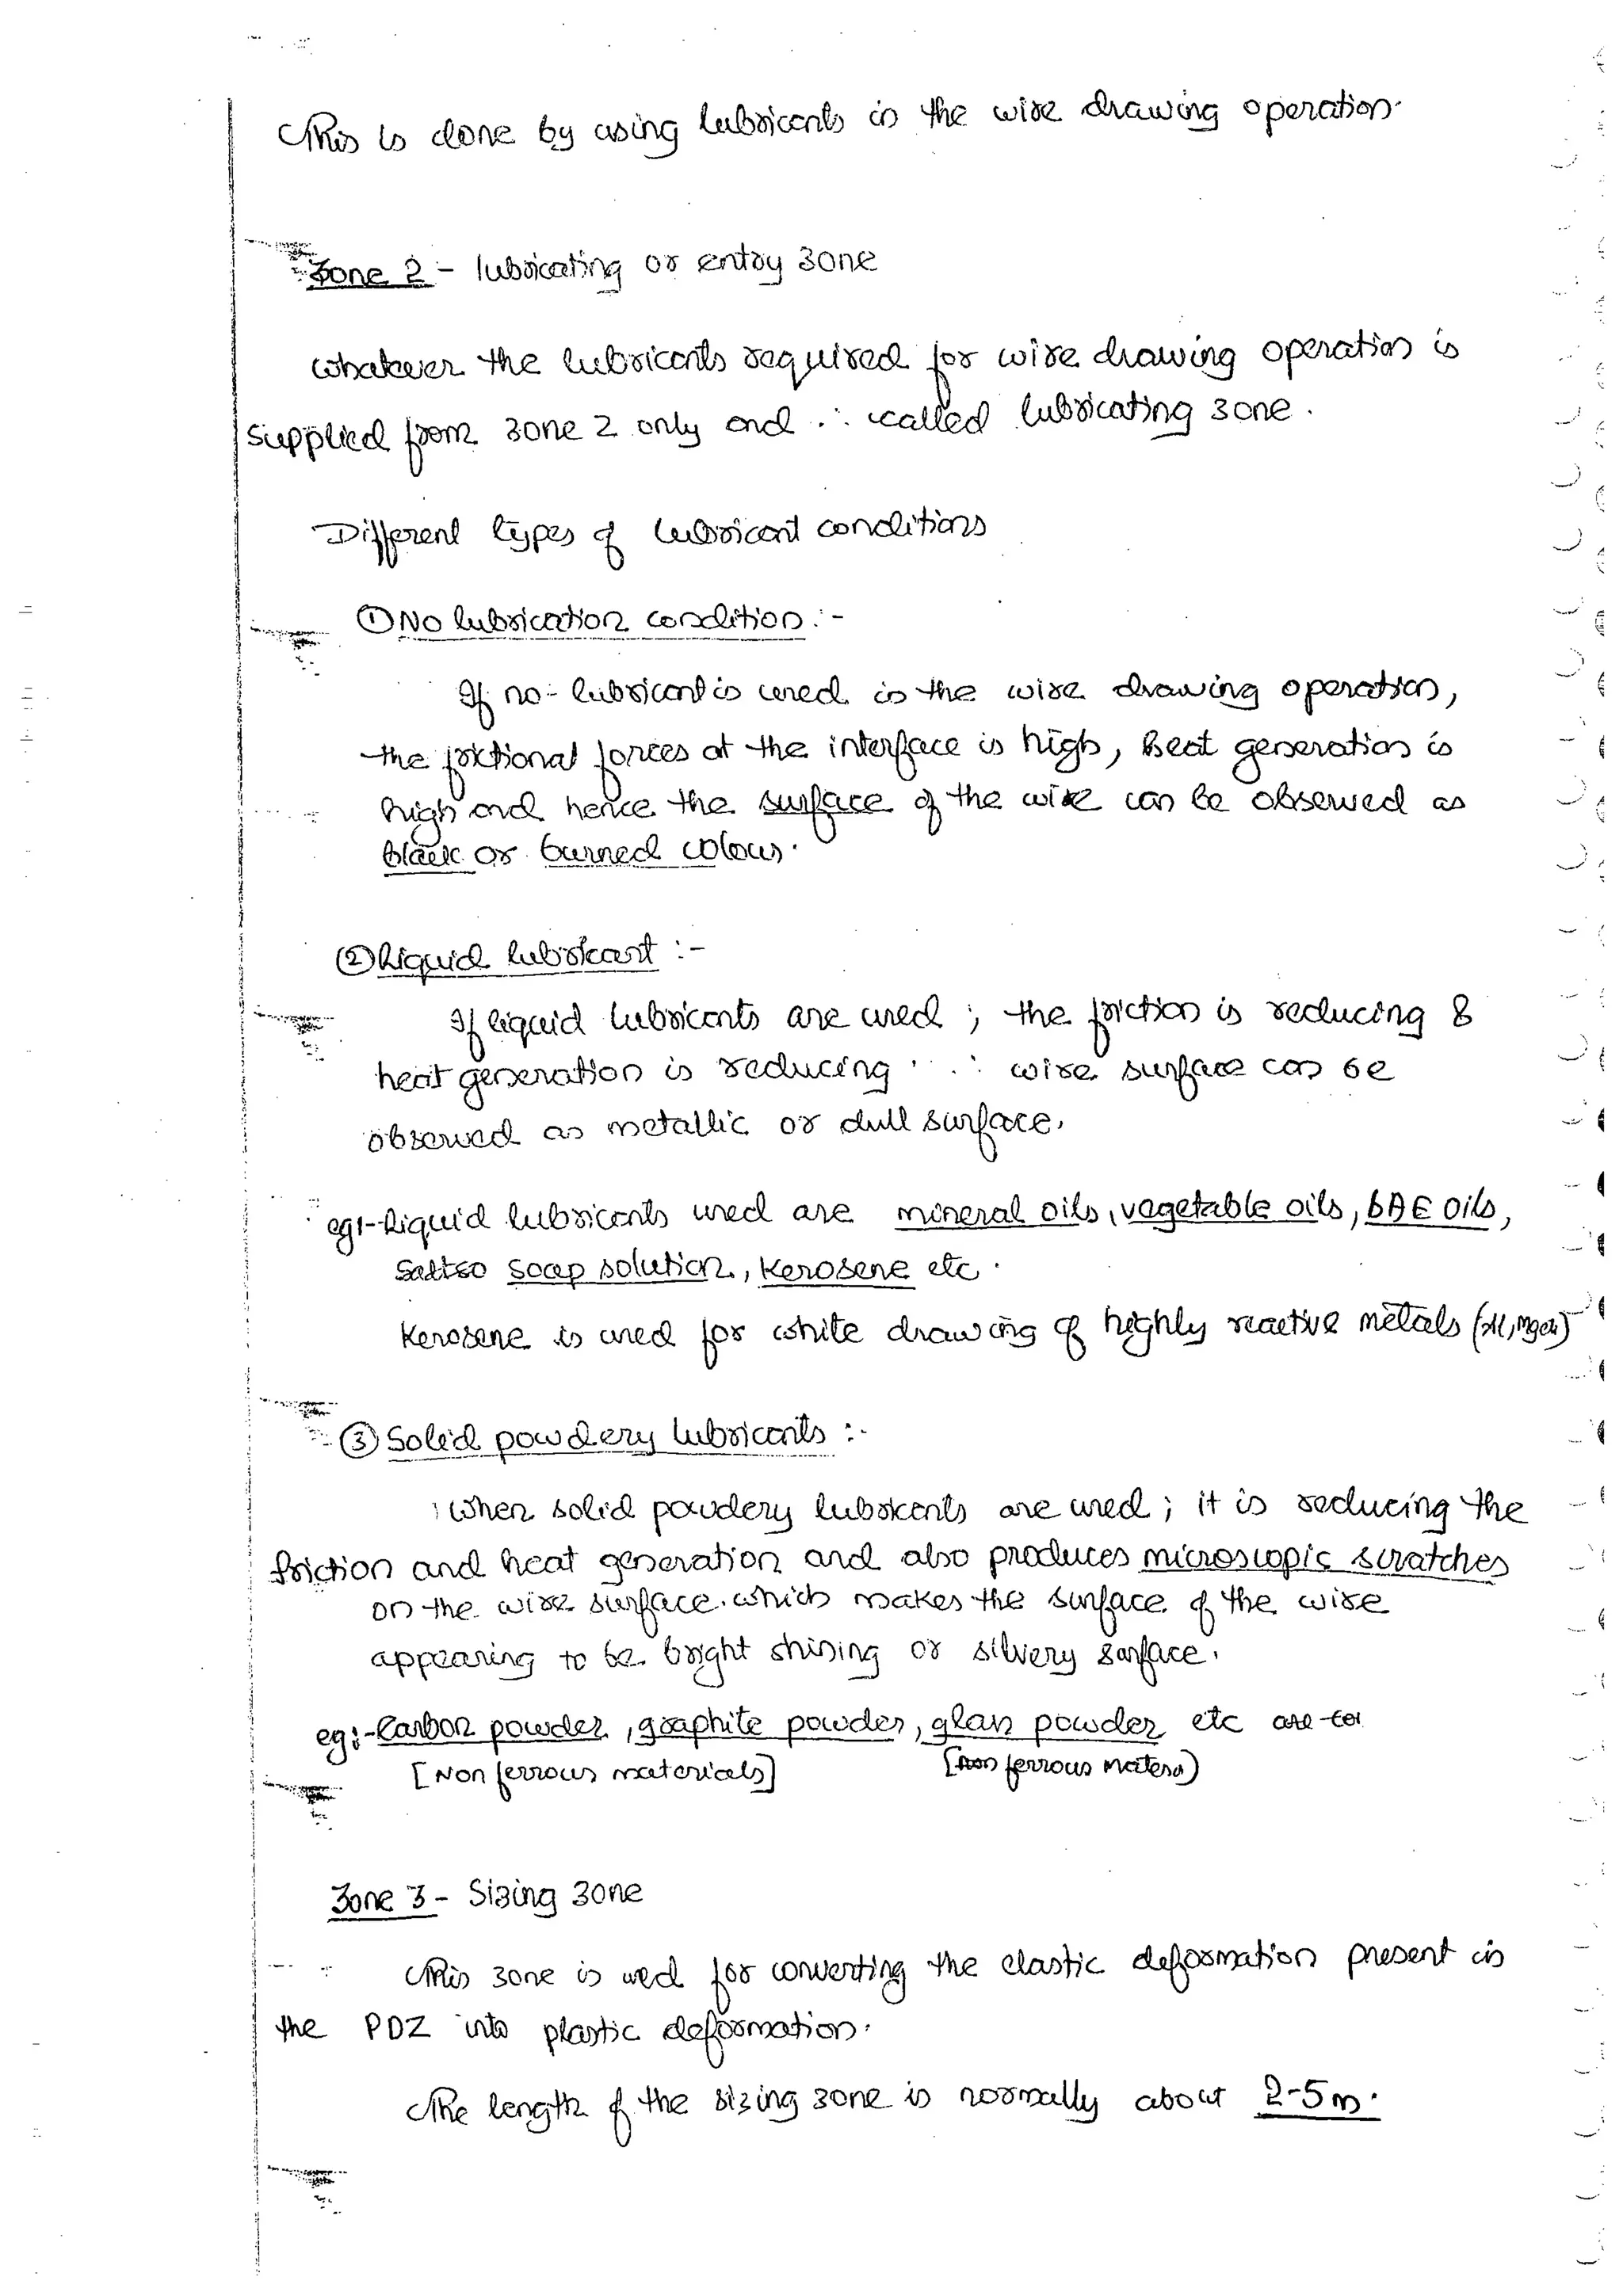 This is done by using lubricants in the wire drawing operation.
Zone 2 - lubricating or entry zone
Whatever the lubricants required for wire drawing operation is
supplied from zone 2 only and ∴ called lubricating zone.
Different types of lubricant conditions
① No lubrication condition :-
If no- lubricant is used in the wire drawing operation,
the frictional forces at the interface is high, heat generation is
high and hence the surface of the wire can be observed as
black or burned colour.
② Liquid lubricant :-
If liquid lubricants are used ; the friction is reducing &
heat generation is reducing . ∴ wire surface can be
observed as metallic or dull surface.
eg:- Liquid lubricants used are mineral oils, vegetable oils, SAE oils,
soap solution, Kerosene etc.
Kerosene is used for white drawing of highly reactive metals (Al, Mg etc)
③ Solid powdery lubricants :-
When solid powdery lubricants are used ; it is reducing the
friction and heat generation and also produces microscopic scratches
on the wire surface. which makes the surface of the wire
appearing to be bright shining or silvery surface.
eg:- Carbon powder, graphite powder, glass powder etc are
[Non ferrous materials] ferrous
Zone 3 - Sizing zone
This zone is used for converting the elastic deformation present in
the PDZ into plastic deformation.
The length of the sizing zone is normally about 2-5m.